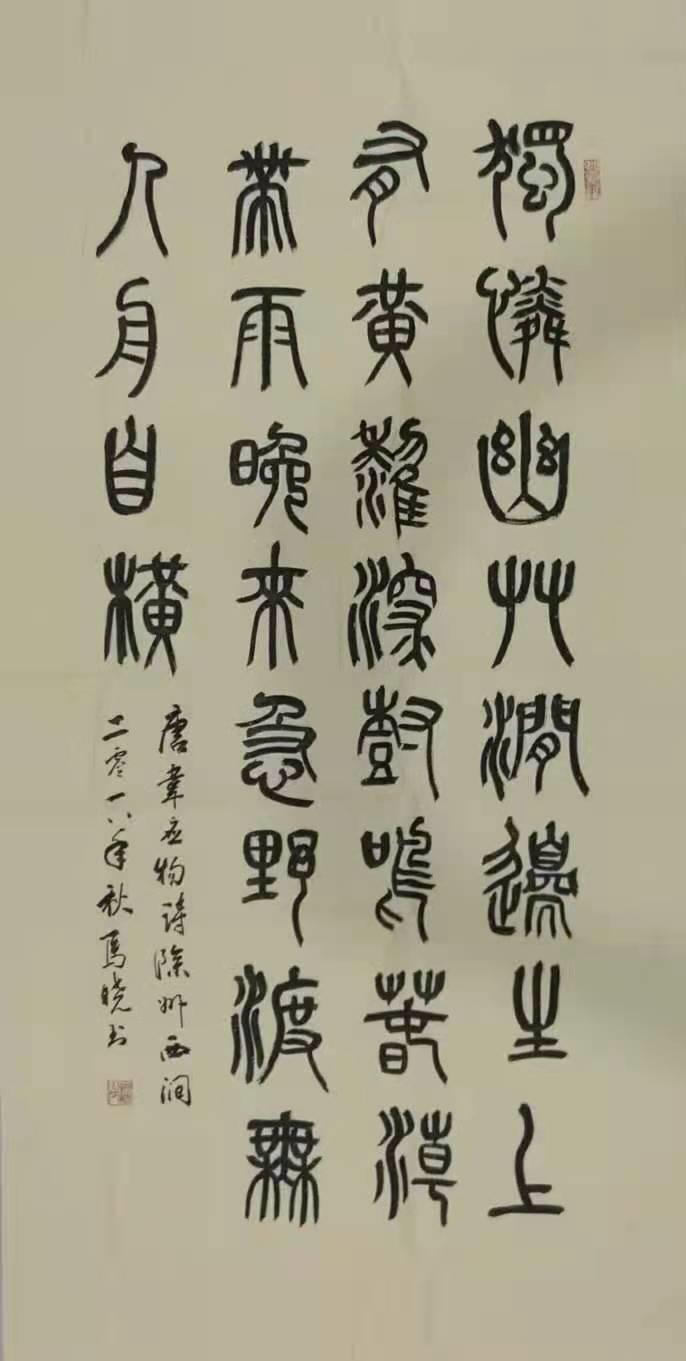 獨憐幽艸澗邊生上
有黃鸝深尌鳴萅潮
帶雨晚來急野渡無
人舟自橫
唐韋应物诗滁州西涧
二零一八年秋馬晓书